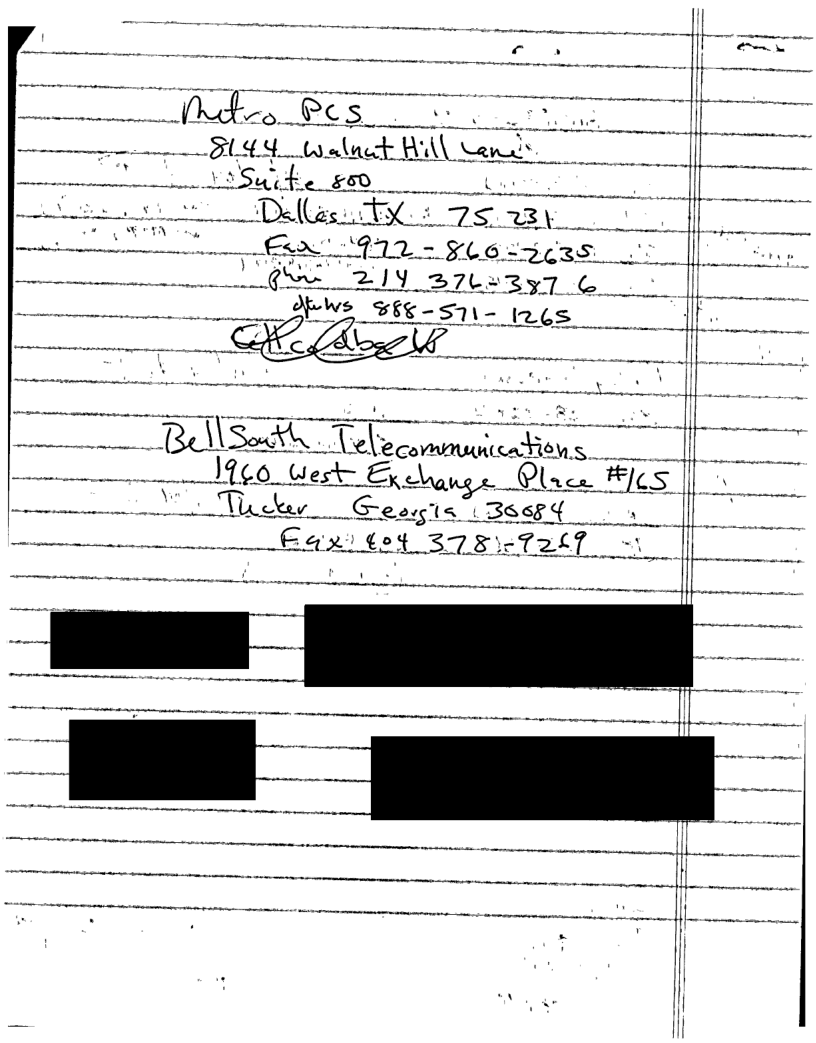 Metro PCS
8144 Walnut Hill Lane
Suite 800
Dallas TX 75 231
Fax 972-860-2635
phone 214 376-387 6
after hrs 888-571-1265
BellSouth Telecommunications
1960 West Exchange Place #165
Tucker Georgia 30084
Fax 404 378-9269